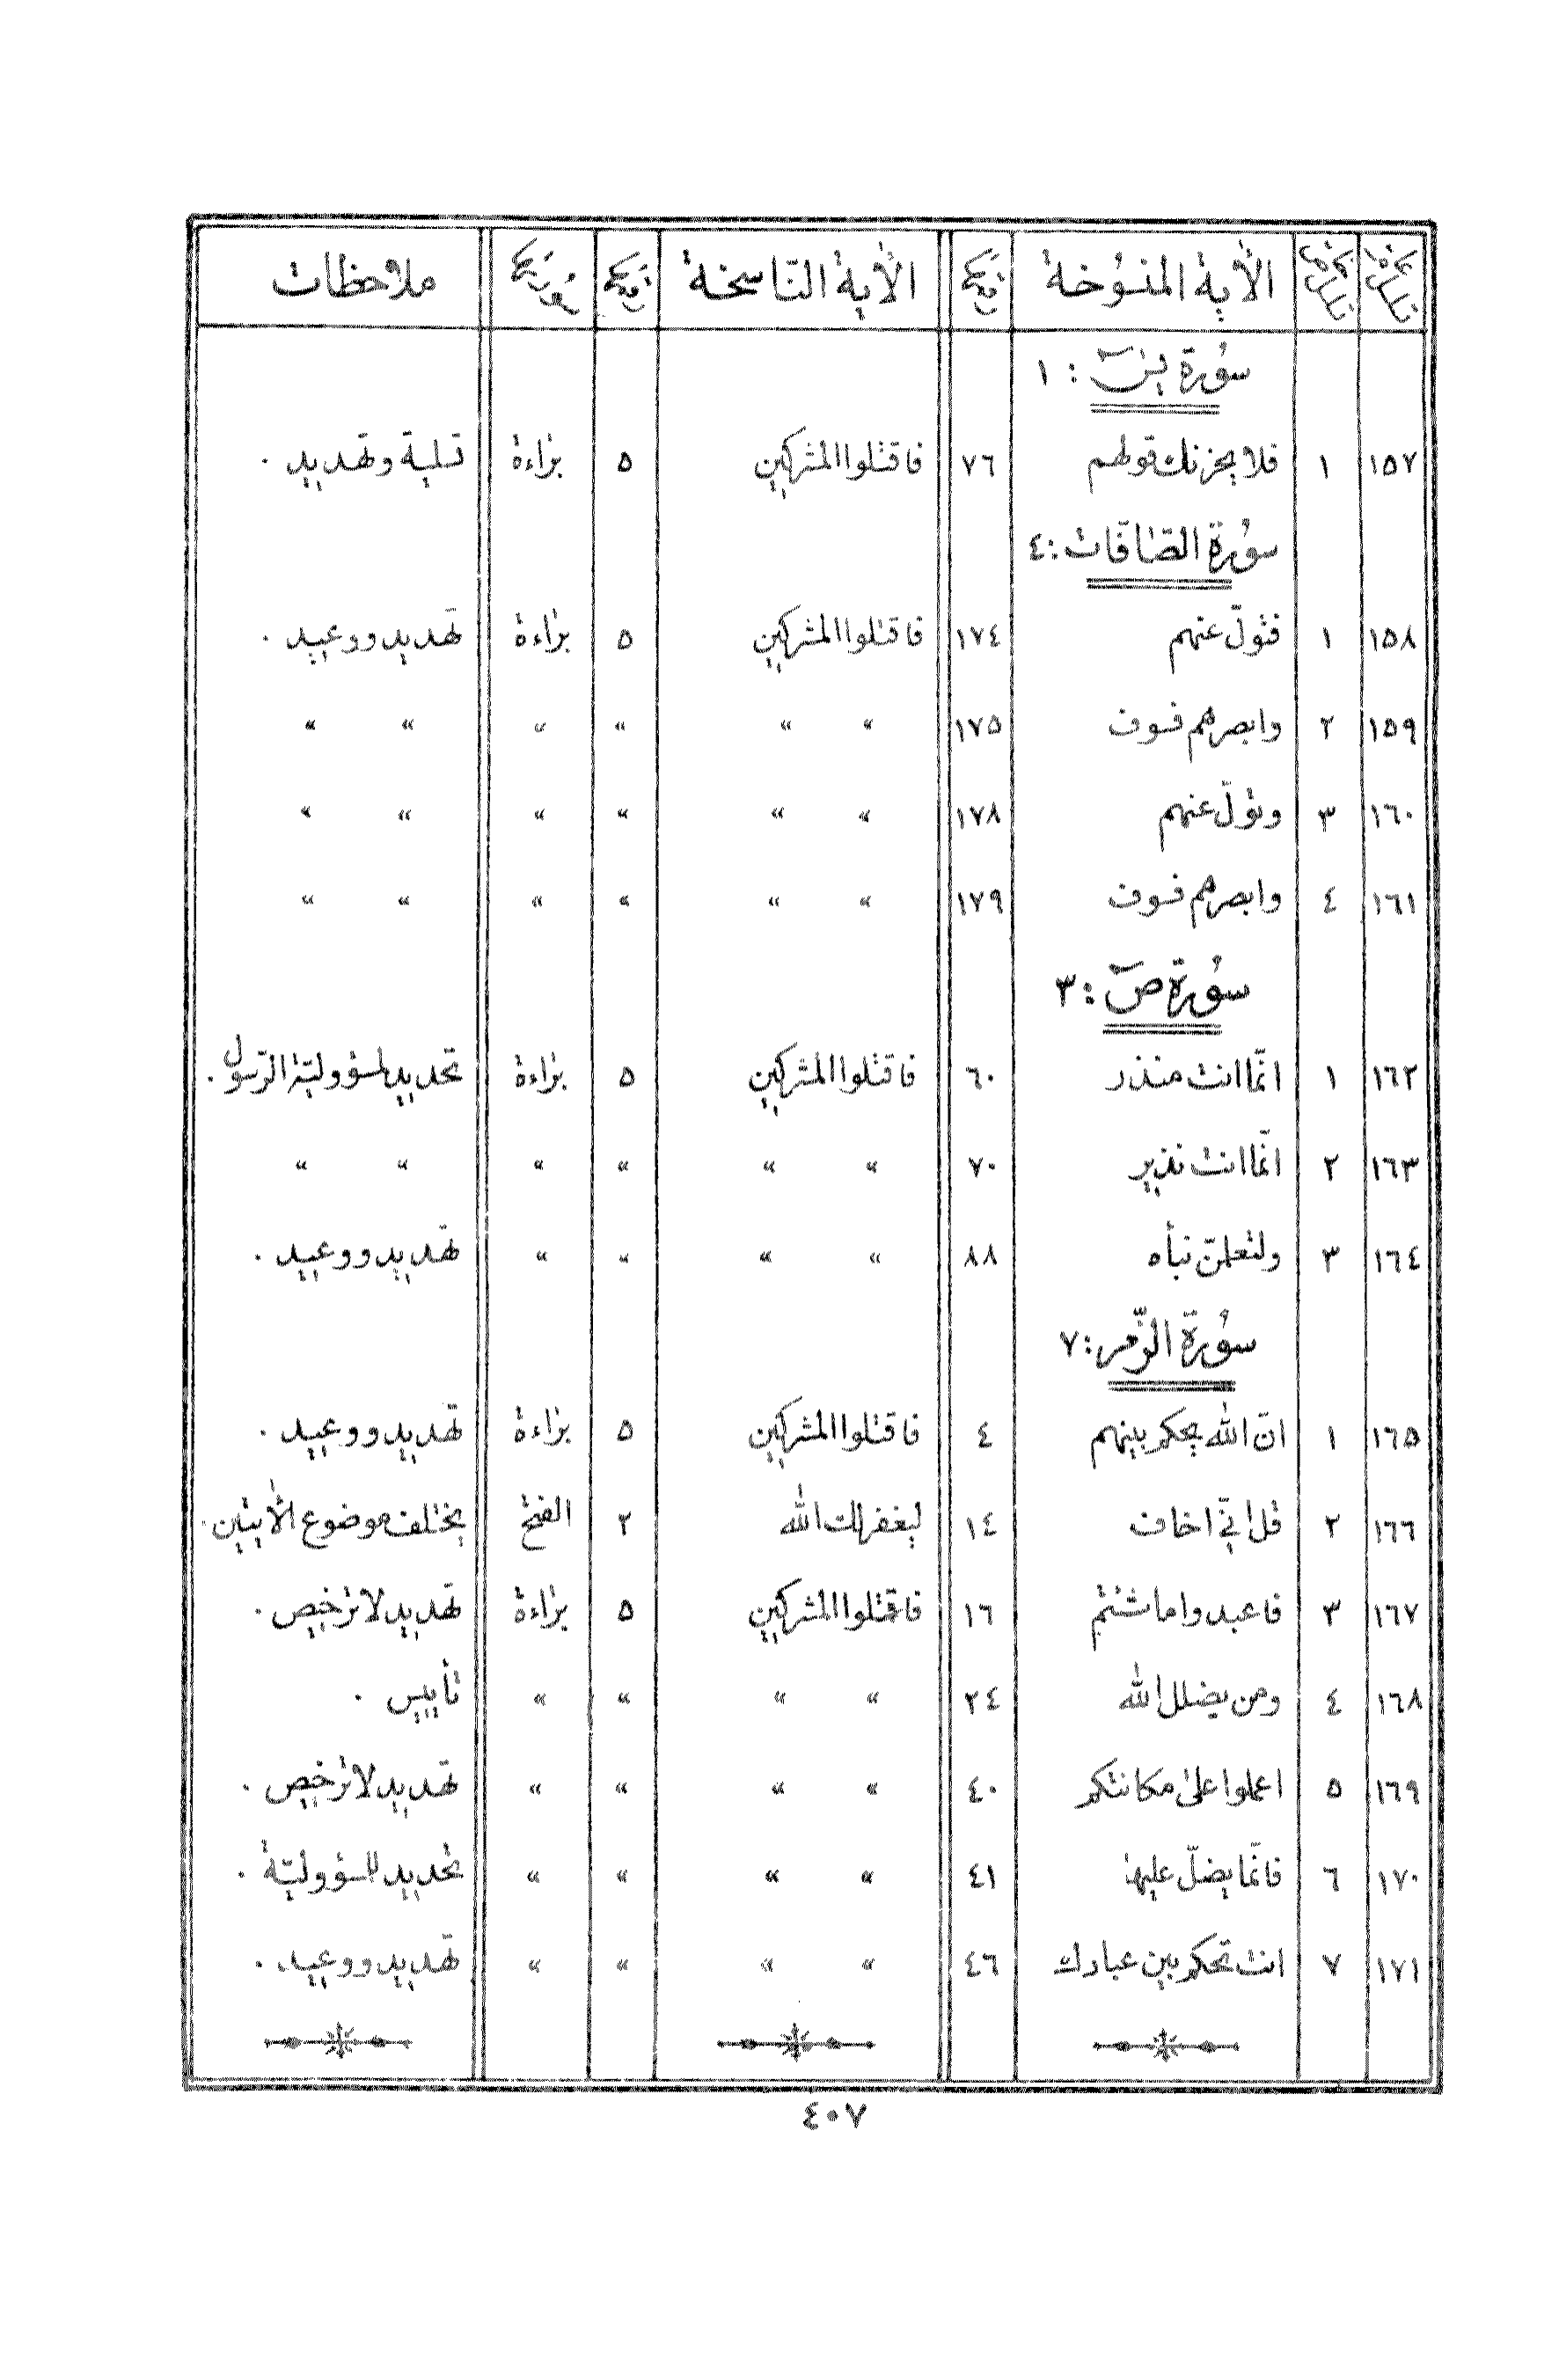 الآية المنسوخة الآية الناسخة ملاحظات
سورة يس : ١
١٥٧ ١ فلا يحزنك قولهم ٧٦ فاقتلوا المشركين ٥ براءة تسلية وتهديد .
سورة الصافات : ٤
١٥٨ ١ فتولّ عنهم ١٧٤ فاقتلوا المشركين ٥ براءة تهديد ووعيد .
١٥٩ ٢ وابصرهم فسوف ١٧٥ « « « « « «
١٦٠ ٣ وتولّ عنهم ١٧٨ « « « « « «
١٦١ ٤ وابصرهم فسوف ١٧٩ « « « « « «
سورة ص : ٣
١٦٢ ١ انّما انت منذر ٦٠ فاقتلوا المشركين ٥ براءة تحديد لمسؤوليّة الرّسول .
١٦٣ ٢ انّما انت نذير ٧٠ « « « « « «
١٦٤ ٣ ولتعلمنّ نبأه ٨٨ « « « « تهديد ووعيد .
سورة الزّمر : ٧
١٦٥ ١ انّ الله يحكم بينهم ٤ فاقتلوا المشركين ٥ براءة تهديد ووعيد .
١٦٦ ٢ قل انّي اخاف ١٤ ليغفر لك الله ٢ الفتح يختلف موضوع الأيتين .
١٦٧ ٣ فاعبدوا ما شئتم ١٦ فاقتلوا المشركين ٥ براءة تهديد لا ترخيص .
١٦٨ ٤ ومن يضلل الله ٢٤ « « « « تأييس .
١٦٩ ٥ اعملوا على مكانتكم ٤٠ « « « « تهديد لا ترخيص .
١٧٠ ٦ فانّما يضلّ عليها ٤١ « « « « تحديد للمسؤوليّة .
١٧١ ٧ انت تحكم بين عبادك ٤٦ « « « « تهديد ووعيد .
٤٠٧